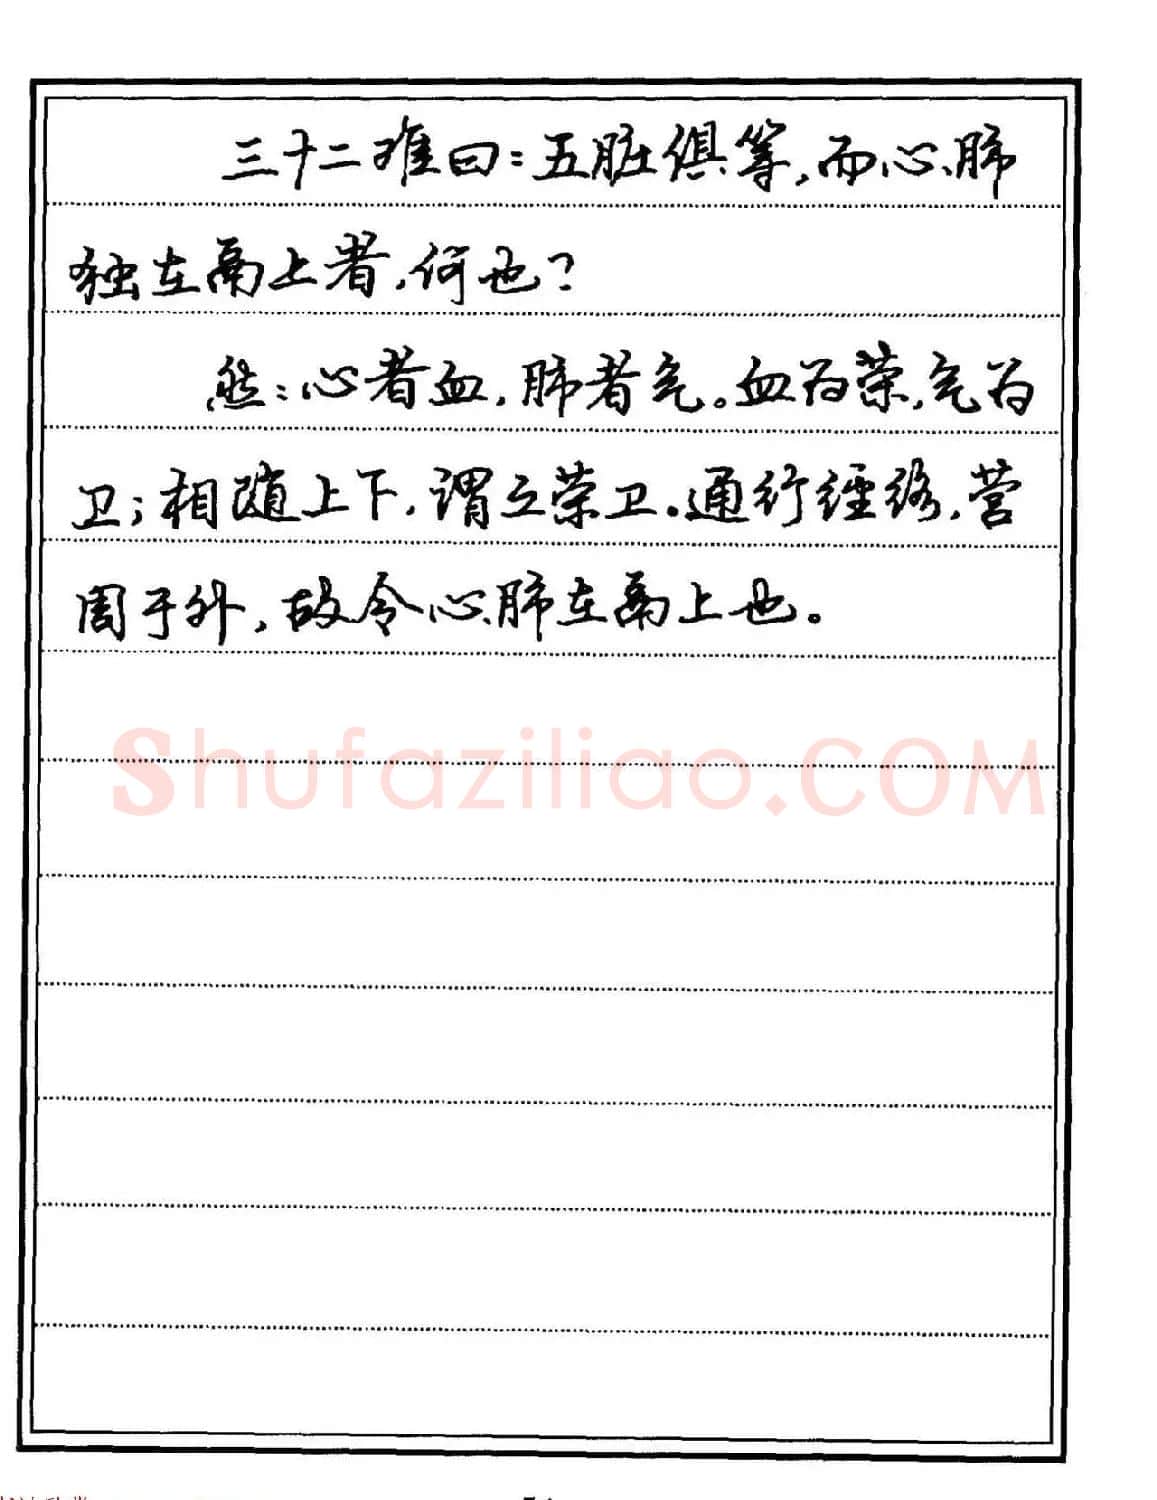 三十二难曰：五脏俱等，而心、肺
独在鬲上者，何也？
然：心者血，肺者气。血为荣，气为
卫；相随上下，谓之荣卫。通行经络，营
周于外，故令心、肺在鬲上也。
Shufaziliao.COM